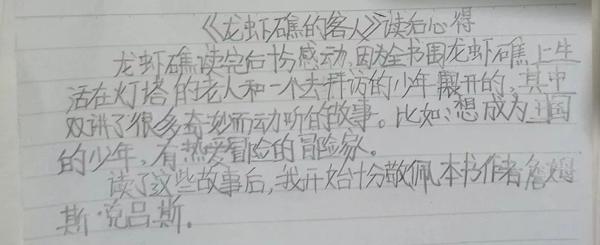 《龙虾礁的客人》读后心得
龙虾礁读完后十分感动,因为全书围龙虾礁上生
活在灯塔的老人和一个去拜访的少年展开的,其中
又讲了很多奇妙而动听的故事。比如:想成为王国
的少年,有热爱冒险的冒险家。
读了这些故事后,我开始十分敬佩本书作者詹姆
斯·克吕斯.